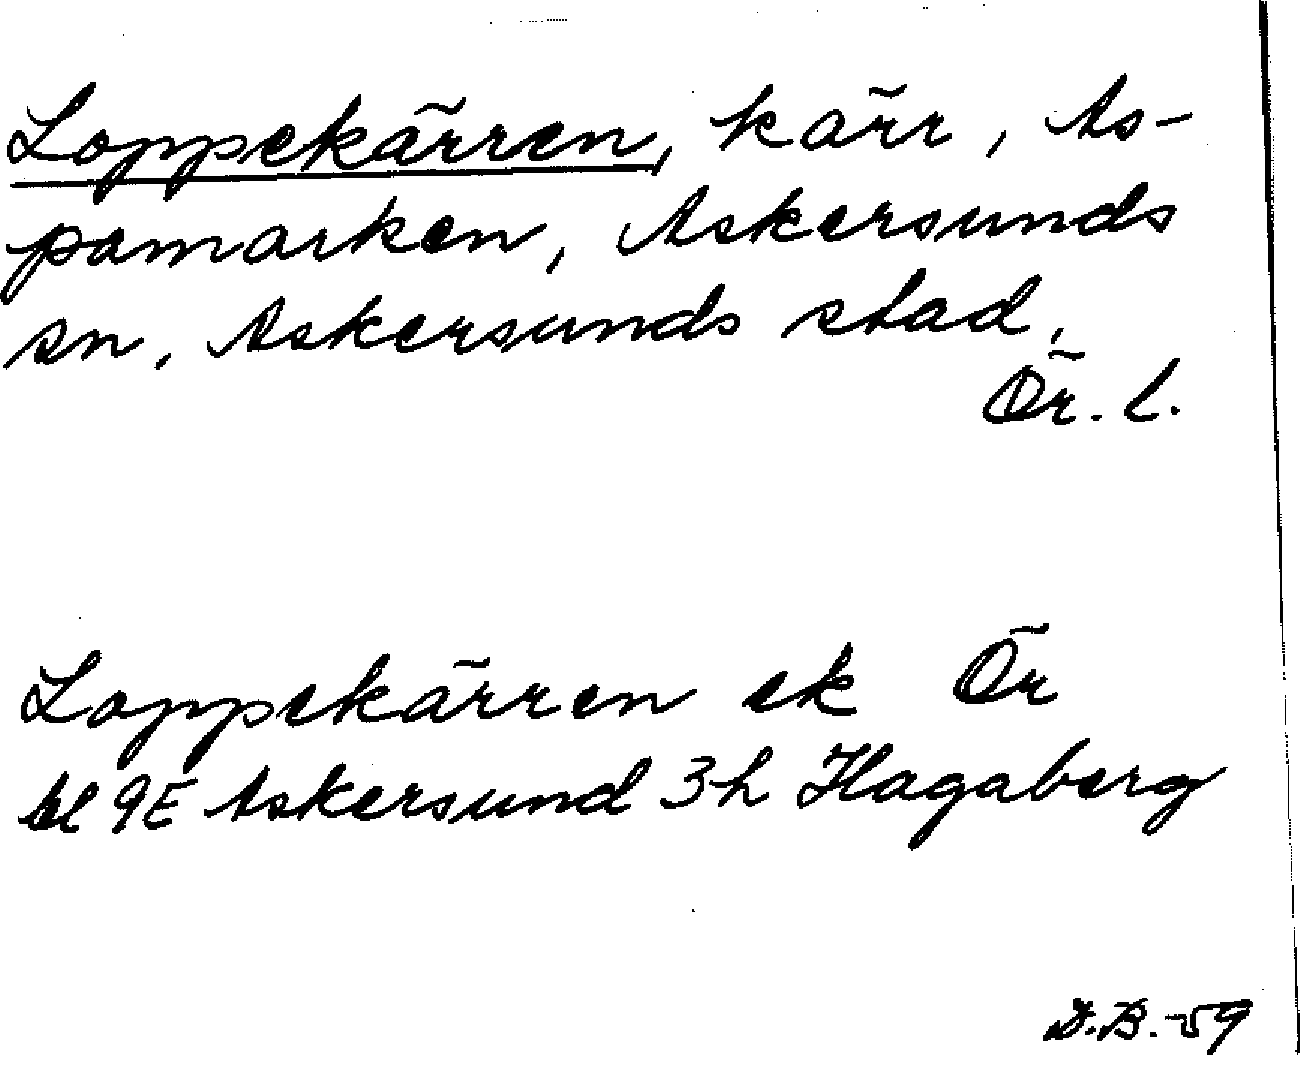 Loppekärren, kärr, As-
pamarken, Askersunds
sn, Askersunds stad,
Ör. l.
Loppekärren ek Ör
bl 9E Askersund 3h Hagaberg
D.B.-59